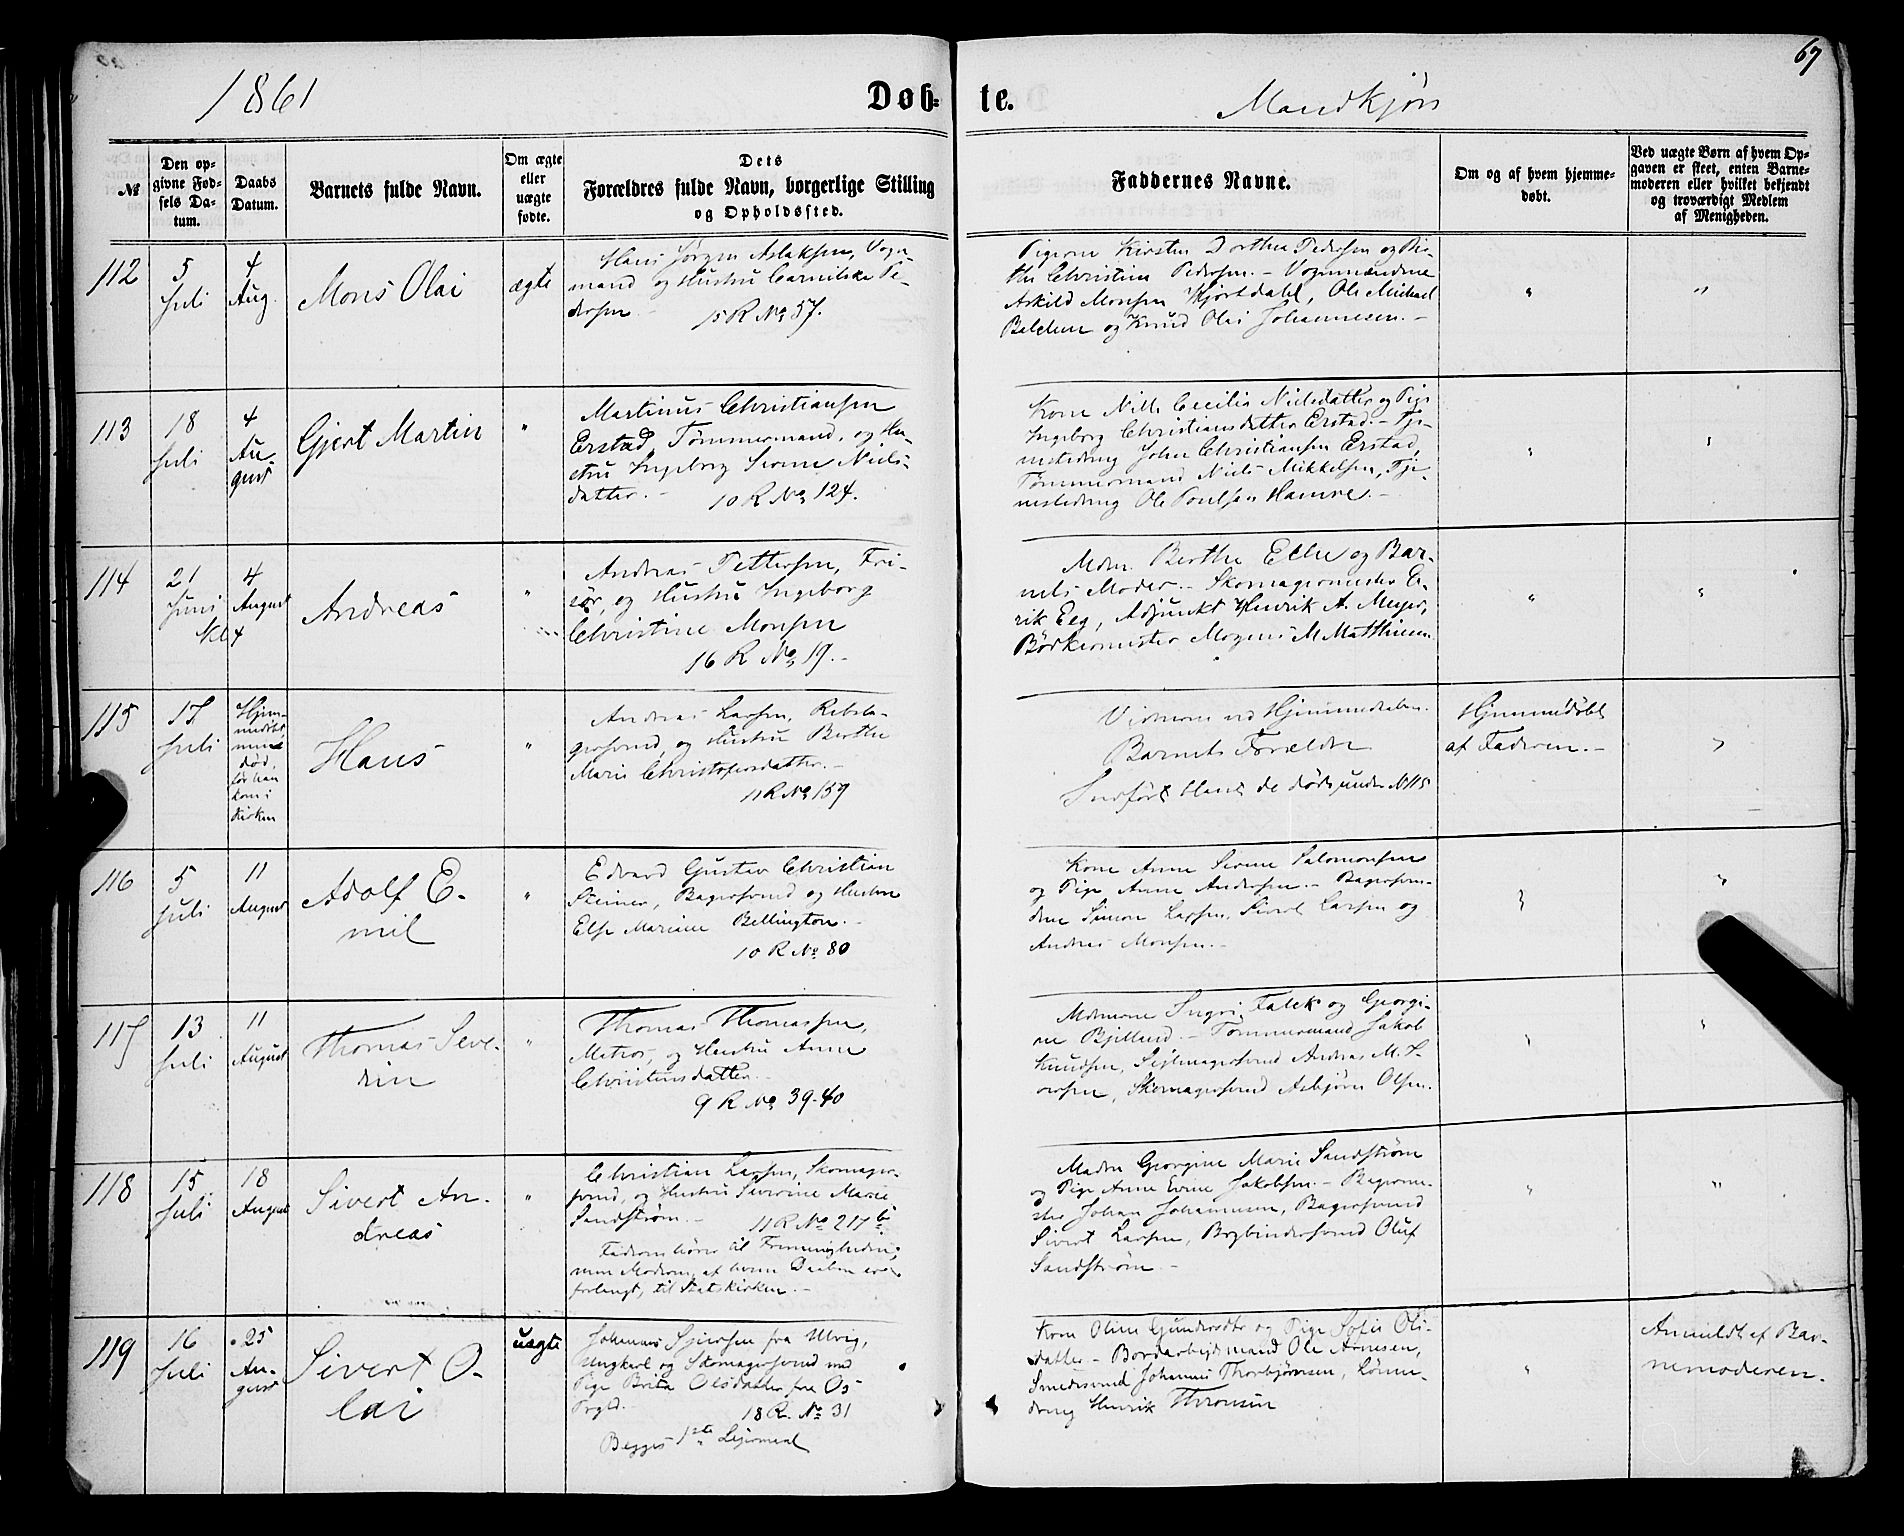 67
1861
Døb-
te.
Mandkjøn
№
Den op-
givne Fød-
sels Da-
tum.
Daabs
Datum.
Barnets fulde Navn.
Om ægte
eller
uægte
fødte.
Dets
Forældres fulde Navn, borgerlige Stilling
og Opholdssted.
Faddernes Navne.
Om og af hvem hjemme-
døbt.
Ved uægte Børn af hvem Op-
gaven er skeet, enten Barne-
moderen eller hvilket bekjendt
og troværdigt Medlem
af Menigheden.
112
5
Juli
4
Aug.
Mons Olai
ægte
Hans Jørgen Aslaksen, Vogn-
mand og Hustru Pe-
dersen.
15 R № 57.
Pigerne Kirsten Dorthea Pedersen og
Christine Pedersen. - Vognmændene
Askild Monsen Hjortdahl, Ole Michael
og Knud Olai Johannesen. -
"
"
113
18
Juli
4
Au-
gust
Gjert Martin
"
Martinus Christiansen
Erstad, Tømmermand, og Hu-
stru Ingeborg Serene Niels-
datter. -
10 R № 124.
Kone Cecilia Nielsdatter og Pige
Ingeborg Christiansdatter Erstad. - Tje-
nestedreng John Christiansen Erstad,
Tømmermand Niels Mikkelsen, Tje-
nestedreng Ole Poulsen Hamre. -
"
"
114
21
Juni
4
August
Andreas
"
Andreas Pettersen, Fri-
sør, og Hustru Ingeborg
Christine Monsen
16 R № 19. -
Mdm. Berthe og Bar-
nets Moder. - Skomagermester E-
rik Eeg, Adjunkt Henrik A. Meyer,
Bødkermester Mogens M Matthiesen
"
"
115
17
Juli
Hjem-
medøbt,
men
død,
før han
kom i
Kirken
Hans
"
Andreas Larsen, Rebsla-
gersvend, og Hustru Berthe
Marie Christophersdatter. -
11 R № 159
Vidnerne ved Hjemmedaaben.
Barnets Forældre
Indført blant de døde under N 115
Hjemmedøbt
af Faderen. -
"
116
5
Juli
11
August
Adolf E-
mil
"
Edvard Gustav Christian
Steiner, Bagersvend og Hustru
Else Mariane Bellington. -
10 R № 80
Kone Anne Serene Salomonsen
og Pige Anne Andersen. - Bagersven-
dene Simon Larsen, Sivert Larsen og
Andreas Monsen. -
"
"
117
13
Juli
11
August
Thomas Seve-
rin
"
Thomas Thomassen,
Matros, og Hustru Anne
Christensdatter. -
9 R № 39-40
Mdmerne Ingri Falck og Georgi-
ne Bjelland. - Tømmermand Jakob
Knudsen, Seilmagersvend Andreas M. I-
versen, Skomagersvend Asbjørn Olsen.
"
"
118
15
Juli
18
August
Sivert An-
dreas
"
Christian Larsen, Skomager-
svend, og Hustru Severine Marie
Sandstrøm. -
11 R № 217 b
Faderen hører til Frimenigheden,
men Moderen, af hvem Daaben er
forlangt, til Statskirken. -
Madm Georgine Marie Sandstrøm
og Pige Anne Evine Jakobsen. - Bagerme-
ster Johan Johannesen, Bagersvend
Sivert Larsen, Bogbindersvend Oluf
Sandstrøm. -
"
"
119
16
Juli
25
Au-
gust
Sivert O-
lai
uægte
Johannes Sjursen fra Ulvig,
Ungkarl og Skomagersvend med
Pige Brita Olsdatter fra Os
Prgld.
18 R. № 31
Begges 1ste Leiermaal
Kone Oline Gundersdtr og Pige Sofie Ols-
datter - Bordarbeidsmand Ole Arnesen,
Smedesvend Johannes Thorbjørnsen,
dreng Henrik Thronsen
"
Anmeldt af Bar-
nemoderen.